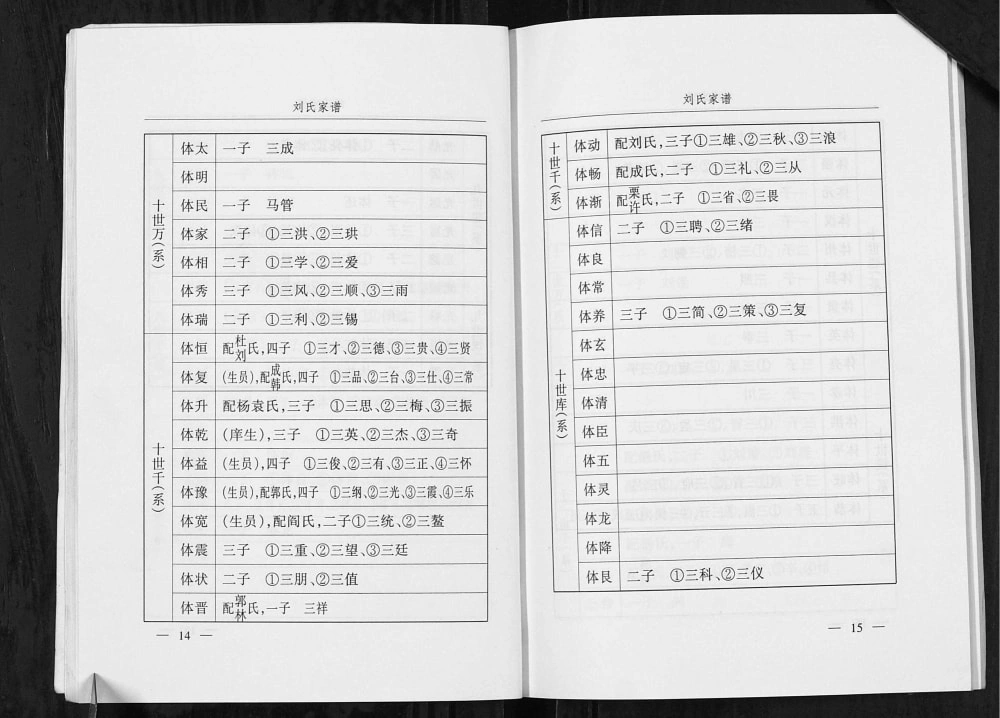 刘氏家谱
十世万(系)
体太 一子 三成
体明
体民 一子 马管
体家 二子 ①三洪、②三珙
体相 二子 ①三学、②三爱
体秀 三子 ①三风、②三顺、③三雨
体瑞 二子 ①三利、②三锡
十世千(系)
体恒 配杜刘氏,四子 ①三才、②三德、③三贵、④三贤
体复 (生员),配成韩氏,四子 ①三品、②三台、③三仕、④三常
体升 配杨袁氏,三子 ①三思、②三梅、③三振
体乾 (庠生),三子 ①三英、②三杰、③三奇
体益 (生员),四子 ①三俊、②三有、③三正、④三怀
体豫 (生员),配郭氏,四子 ①三纲、②三光、③三霞、④三乐
体宽 (生员),配阎氏,二子①三统、②三鳌
体震 三子 ①三重、②三望、③三廷
体状 二子 ①三朋、②三值
体晋 配郭林氏,一子 三祥
— 14 —
刘氏家谱
十世千(系)
体动 配刘氏,三子①三雄、②三秋、③三浪
体畅 配成氏,二子 ①三礼、②三从
体渐 配栗许氏,二子 ①三省、②三畏
十世库(系)
体信 二子 ①三聘、②三绪
体良
体常
体养 三子 ①三简、②三策、③三复
体玄
体忠
体清
体臣
体五
体灵
体龙
体降
体艮 二子 ①三科、②三仪
— 15 —